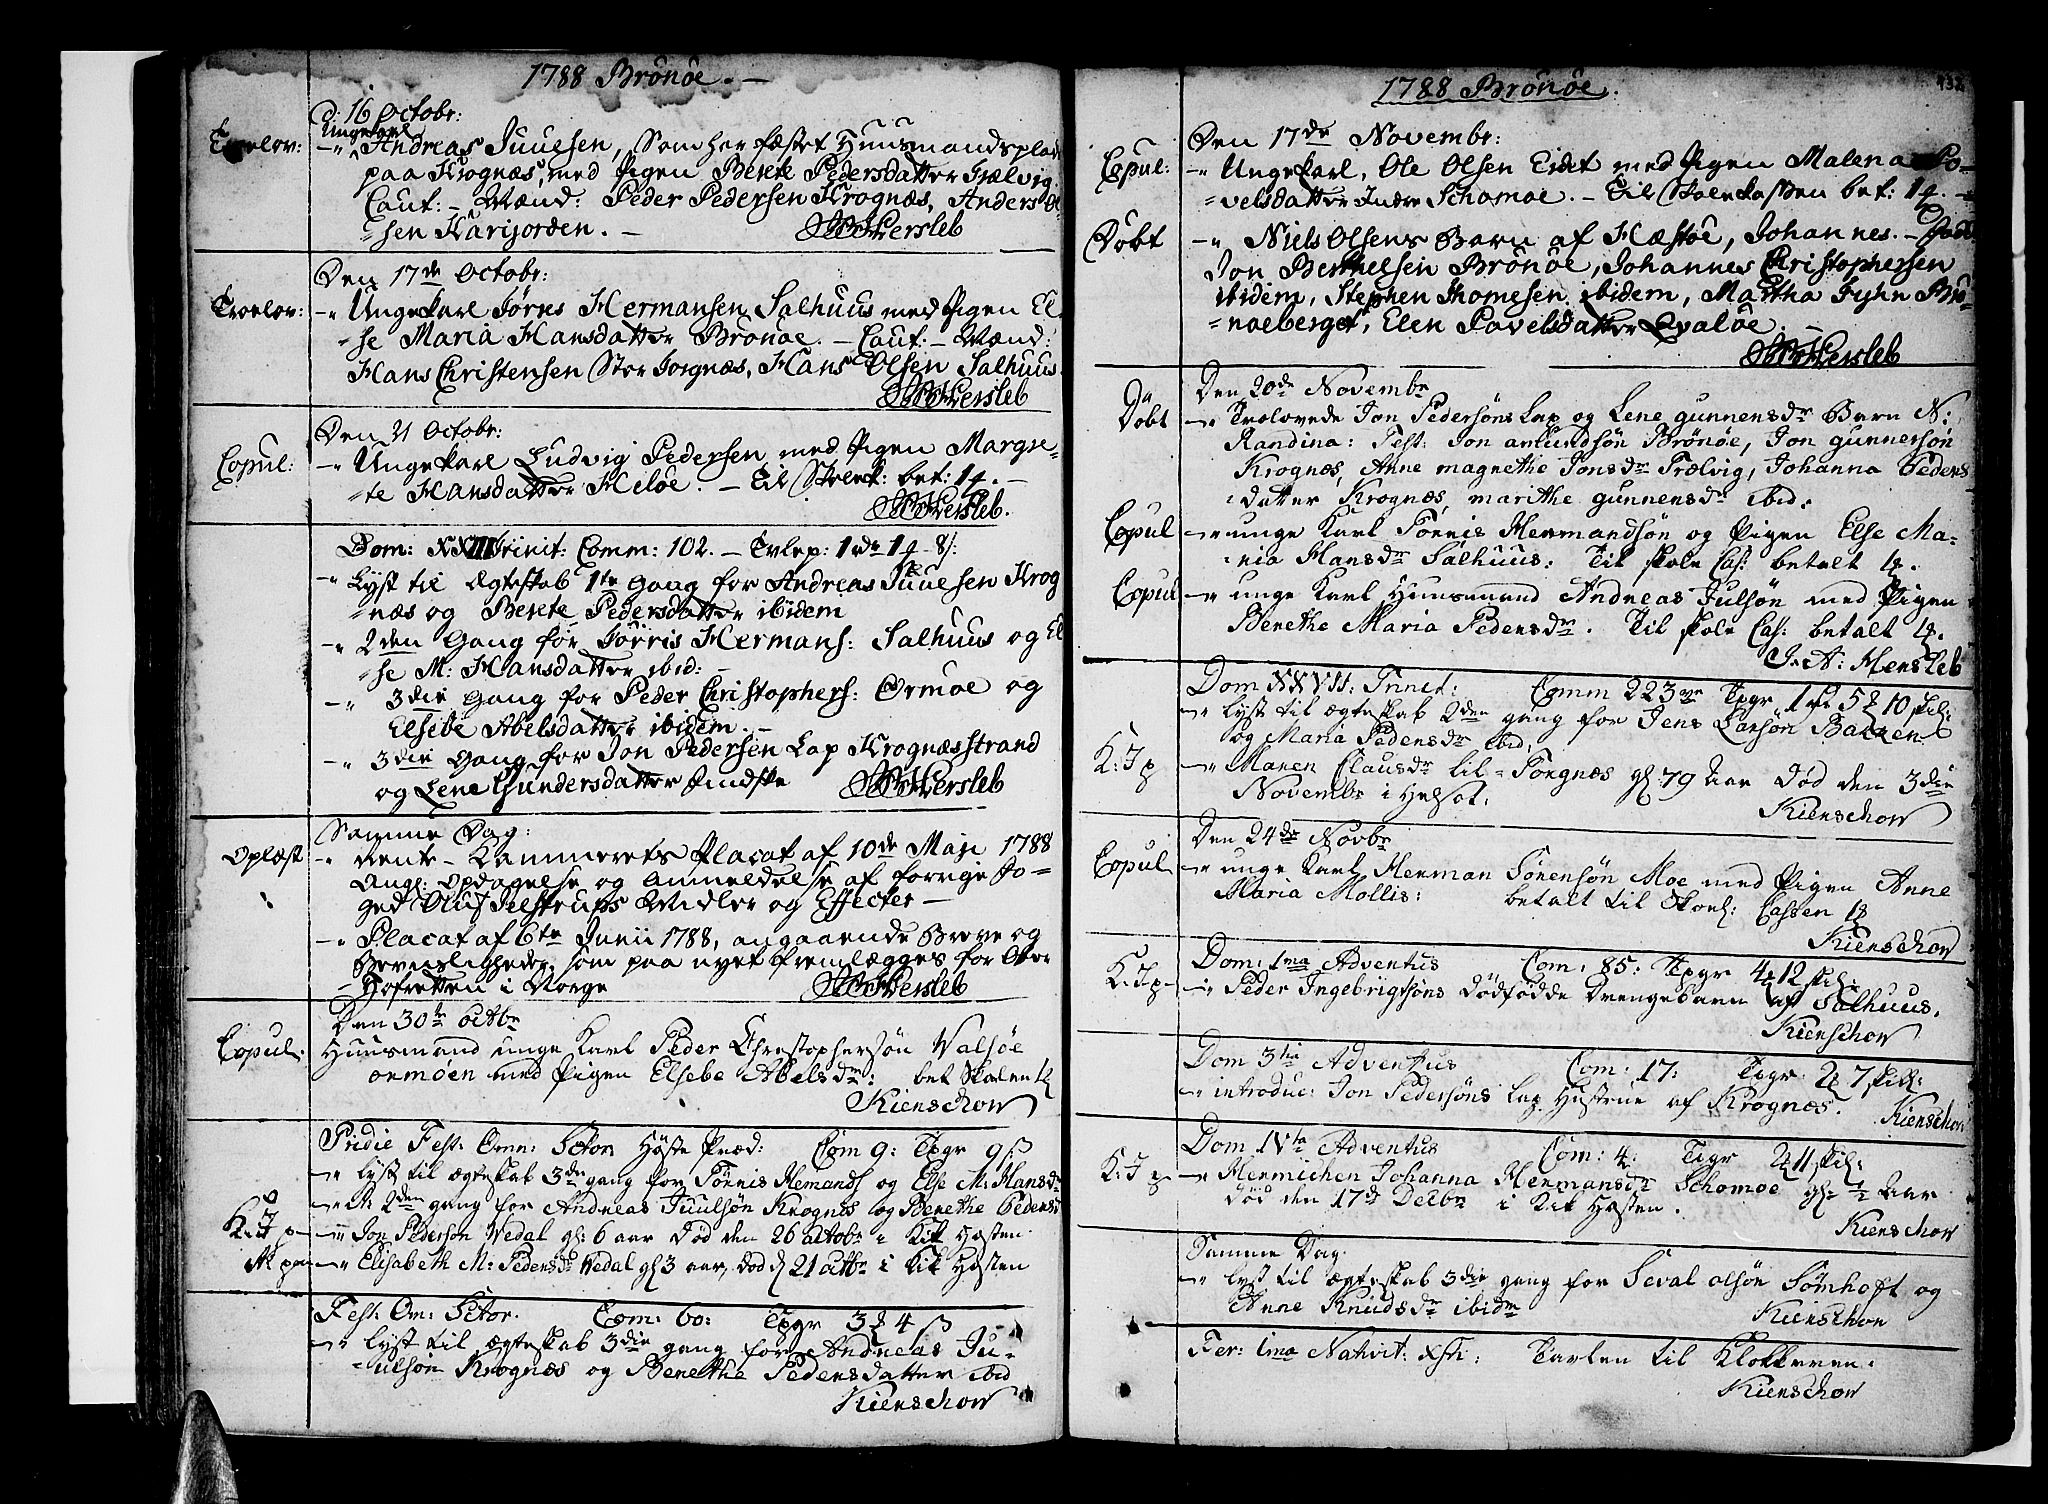 1788 Brönöe. –
d: 16 Octobr:
Ungekarl
Troelov: –„ Andreas Juuelsen, Som her fæstet Huusmandsplads
paa Krognæs, med Pigen Berete Pedersdatter Trælvig.
Caut: – Mænd: Peder Pedersen Krognæs, Anders Ol
=sen Karijorden. –
Hersleb
Den 17de Octobr:
Troelov: –„ Ungekarl Jörres Hermansen Salhuus med Pigen El
=se Maria Hansdatter Brönöe. – Caut. – Mænd:
Hans Christensen Stor Torgnæs, Hans Olsen Salhuus.
Hersleb
Den 21 Octobr:
Copul: –„ Ungekarl Ludvig Pedersen med Pigen Margre=
=te Hansdatter Heløe. – Til Skolek: bet: 1
Hersleb.
Dom: XXIII Trinit: Comm: 102. –
–„ Lyst til Ægteskab 1te Gang for Andreas Juuelsen Krog
=næs og Berete Pedersdatter ibidem
–„ 2den Gang for Törris Hermans: Salhuus og El
=se M: Hansdatter ibid: –
–„ 3die Gang for Peder Christophers: Ormoe og
Elsebe Abelsdatter ibidem. –
–„ 3die Gang for Jon Pedersen Lap Krognæsstrand
og Lene Gundersdatter Hersleb
Samme Dag:
Oplæst –„ Rente-Kammerets Placat af 10de Maji 1788
Ang: Opdagelse og Anmeldelse af forrige Fo=
ged Oluf Jelstrups Midler og Effecter –
–„ Placat af 6te Junii 1788, angaaende Breve og
som paa nyet fremlægges for Over
– Hofretten i Norge Hersleb
Den 30te octbr
Copul: Huusmand unge Karl Peder Christophersön Valsöe
ormöen med Pigen Elsebe Abelsdr: bet Skolen 1
Kienschow
Pridie Fest: Omn: Sctor Höste Præd: Com 9: Tpgr 9 ß
–„ lyst til ægteskab 3die gang for Törris Hemands og Else M: Hansdr
–„ 2den gang for Andreas Juulsön Krognæs og Berethe Peders
K: J: p – Jon Pedersön Vedal gl: 6 aar död den 26 octobr i Kik Hosten
–„ Elisabeth M: Pedersdr Vedal gl 3 aar, död d 21 octbr i Kik Hosten
Fest: Om: Sctor. Com: 60: Tpgr 3 4 ß
–„ lyst til ægteskab 3die gang for Andreas Ju=
=ulsön Krognæs og Berethe Pedersdatter ibid
Kienschow
1788 Brönöe.
Den 17de Novembr:
Copul: –„ Ungekarl, Ole Olsen Eidet med Pigen Malena Po=
=velsdatter Indre Schomoe. – Til Skolekassen bet: 1
Döbt –„ Niels Olsens Barn af Hæstöe, Johannes. –
Jon Berthelsen Brönöe, Johannes Christophersen
ibidem, Stephen Thomesen ibidem, Martha Fyhn Brö
=nöeberget, Elen Pavelsdatter
Hersleb
Den 20de Novembr
Döbt –„ Trolovede Jon Pedersöns Lap og Lene gunnersdr Barn N:
Randina: Test: Jon amundsön Brönöe, Jon gunnersön
Krognæs, Anne magrethe Jonsdr Trælvig, Johanna Peders
datter Krognæs, marithe gunnersdr ibid.
Copul –„ unge Karl Törris Hermandsön og Pigen Else Ma=
=ria Hansdr Salhuus: Til skole Cas: betalt 1
Copul –„ unge Karl Huusmand Andreas Julsön med Pigen
Berethe Maria Pedersdr. Til skole Cas: betalt 1
J: A: Hersleb
Dom XXVII: Trinit: Comm 223 Tpgr 1 rd 5 10 skil:
–„ lyst til ægteskab 2den gang for Jens Larsön Bakken
og Maria Pedersdr ibid,
K: J p –„ Maren Clausdr lil-Torgnæs gl: 79 Aar Död den 3die
Novembr i Helsot.
Kienschow
Den 24de Novbr
Copul –„ unge Karl Herman Sörensön Moe med Pigen Anne
Maria Mollis: betalt til Skoel: Cassen 1
Kienschow
Dom: 1ma Adventus Com: 85: Tpgr 4 12 skil:
K: J p – Peder Ingebrigtsöns Dödfödde Drengebarn af Salhuus.
Kienschow
Dom 3tia Adventus Com: 17: Tpgr 2 7 skil:
–„ introduc: Jon Pedersöns Lap Hustrue af Krognæs.
Kienschow
Dom: IVta Adventus Com: 4: Tpgr 2 11 skil:
K: J p –„ Hermichen Johanna Hermansdr Schomoe gl: ½ Aar
död den 17d Decbr i Kik Hosten.
Kienschow
Samme Dag.
–„ lyst til ægteskab 3die gang for Seval olsön Sömhoft og
Anne Knudsdr ibidm
Kienschow
Fer: 1ma Nativit: Xsti: Tavlen til Klokkeren.
Kienschow